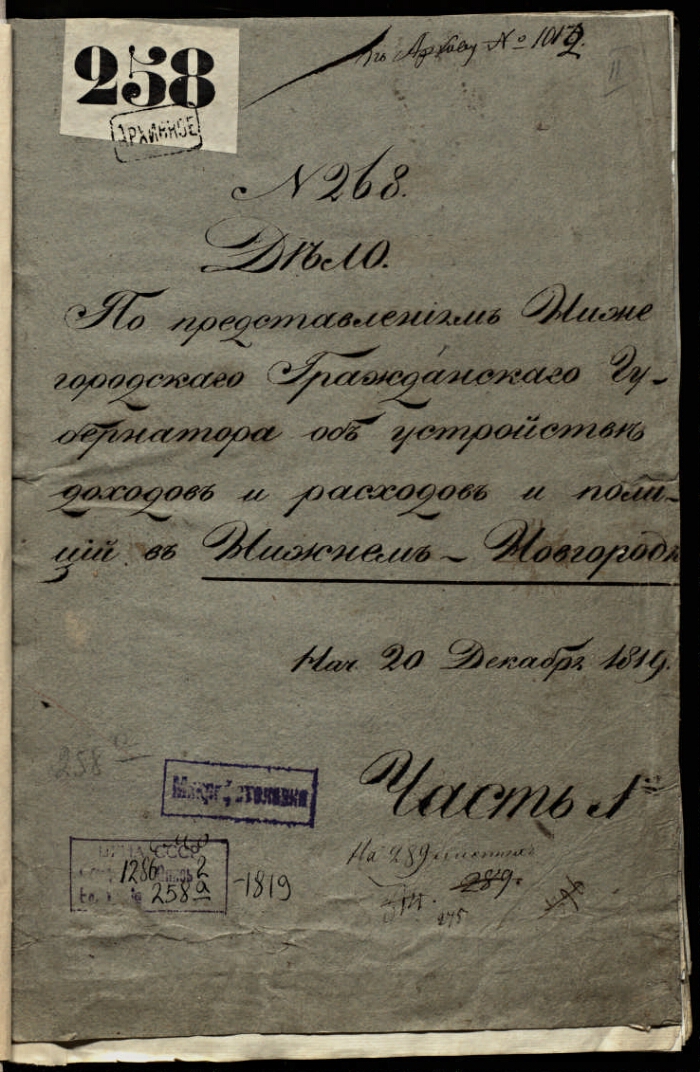 258
АРХИВНОЕ
Къ Архиву № 1012.
II
№ 268.
Дѣло.
По представленіямъ Ниже
городскаго Гражданскаго Гу-
бернатора объ устройствѣ
доходовъ и расходовъ и поли-
цій въ Нижнемъ-Новгородѣ
Нач 20 Декабря 1819.
258 а
Часть 1я
Микрофотокопия
На 289 листахъ
СССР
1286 опись 2
258а -1819
289.
275